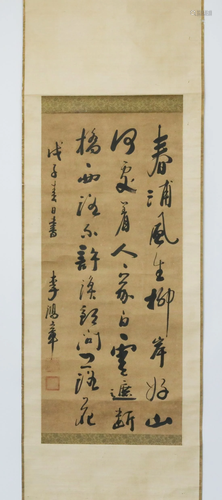 春浦風生柳岸好山
何處着人家白雲遮斷
橋西路不許漁郎問落花
戊子春日書
李鴻章